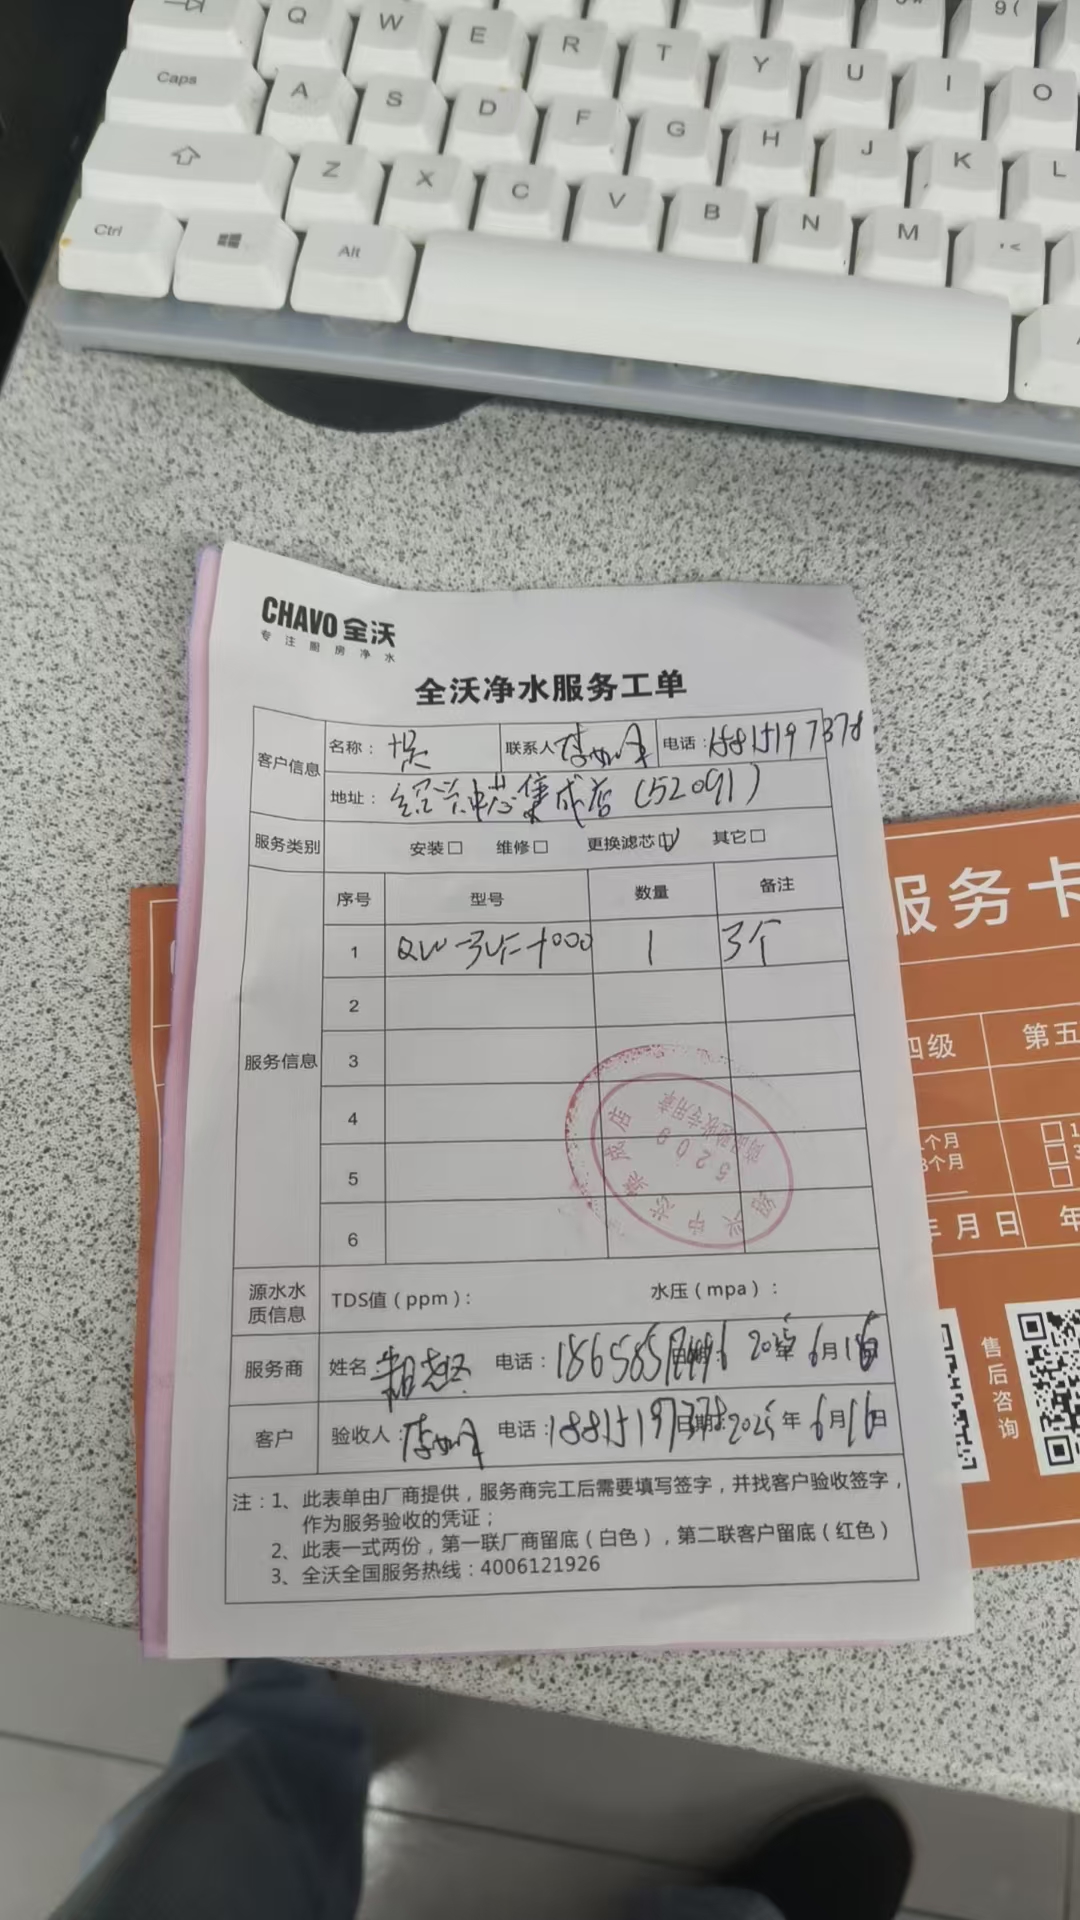 Q W E R T Y U I O
Caps A S D F G H J K L
Z X C V B N M
Ctrl Alt
CHAVO 全沃
专注厨房净水
全沃净水服务工单
客户信息 名称： 联系人 电话：18815197378
地址：绍兴中芯集成店（52091）
服务类别 安装□ 维修□ 更换滤芯☑ 其它□
服务信息 序号 型号 数量 备注
1 1 3个
2
3
4
5
6
绍兴中芯集成店
5209
商品验收专用章
源水水质信息 TDS值（ppm）： 水压（mpa）：
服务商 姓名 电话： 2025年6月16日
客户 验收人： 电话：18815197378 日期：2025年6月16日
注：1、此表单由厂商提供，服务商完工后需要填写签字，并找客户验收签字，
作为服务验收的凭证；
2、此表一式两份，第一联厂商留底（白色），第二联客户留底（红色）
3、全沃全国服务热线：4006121926
服务卡
四级 第五
个月
3个月
年月日 年
售后咨询